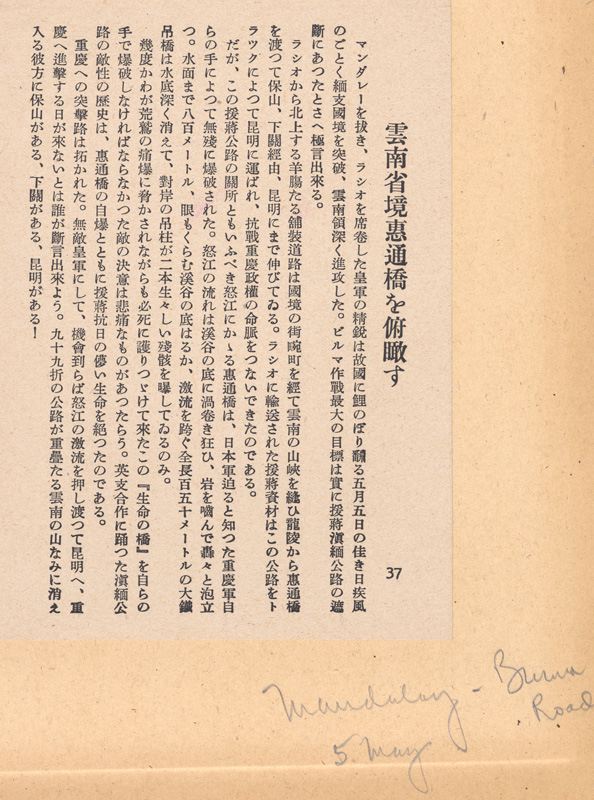 雲南省境惠通橋を俯瞰す
マンダレーを拔き、ラシオを席卷した皇軍の精銳は故國に鯉のぼり飜る五月五日の佳き日疾風
のごとく緬支國境を突破、雲南領深く進攻した。ビルマ作戰最大の目標は實に援蔣滇緬公路の遮
斷にあつたとさへ極言出來る。
ラシオから北上する羊膓たる舖裝道路は國境の街畹町を經て雲南の山峽を縫ひ龍陵から惠通橋
を渡つて保山、下關經由、昆明にまで伸びてゐる。ラシオに輸送された援蔣資材はこの公路をト
ラツクによつて昆明に運ばれ、抗戰重慶政權の命脈をつないできたのである。
だが、この援蔣公路の關所ともいふべき怒江にかゝる惠通橋は、日本軍迫ると知つた重慶軍自
らの手によつて無殘に爆破された。怒江の流れは溪谷の底に渦卷き狂ひ、岩を嚙んで轟々と泡立
つ。水面まで八百メートル、眼もくらむ溪谷の底はるか、激流を跨ぐ全長百五十メートルの大鐵
吊橋は水底深く消えて、對岸の吊柱が二本生々しい殘骸を曝してゐるのみ。
幾度かわが荒鷲の痛爆に脅かされながらも必死に護りつゞけて來たこの『生命の橋』を自らの
手で爆破しなければならなかつた敵の決意は悲痛なものがあつたらう。英支合作に踊つた滇緬公
路の敵性の歷史は、惠通橋の自爆とともに援蔣抗日の儚い生命を絕つたのである。
重慶への突擊路は拓かれた。無敵皇軍にして、機會到らば怒江の激流を押し渡つて昆明へ、重
慶へ進擊する日が來ないとは誰が斷言出來よう。九十九折の公路が重疊たる雲南の山なみに消え
入る彼方に保山がある、下關がある、昆明がある！
37
Mandalay - Burma
Road
5 May